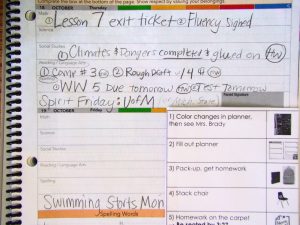 Complete the box at the bottom of the page. Show respect by valuing your belongings.
18 OCTOBER Thursday
① Lesson 7 exit ticket ② Fluency Signed
Science
Social Studies
① Climates & Dangers completed & glued on HW
Reading / Language Arts
① Comp #3 HW ② Rough Draft 14 HW
③ WW 5 Due Tomorrow HW ④ Test Tomorrow
Spirit Friday: U of M
19 OCTOBER Friday
Math
Science
Social Studies
Reading / Language Arts
Spelling
Swimming Starts Mon
Spelling Words
1) Color changes in planner, then see Mrs. Brady
2) Fill out planner
3) Pack-up, get homework
4) Stack chair
5) Homework on the carpet